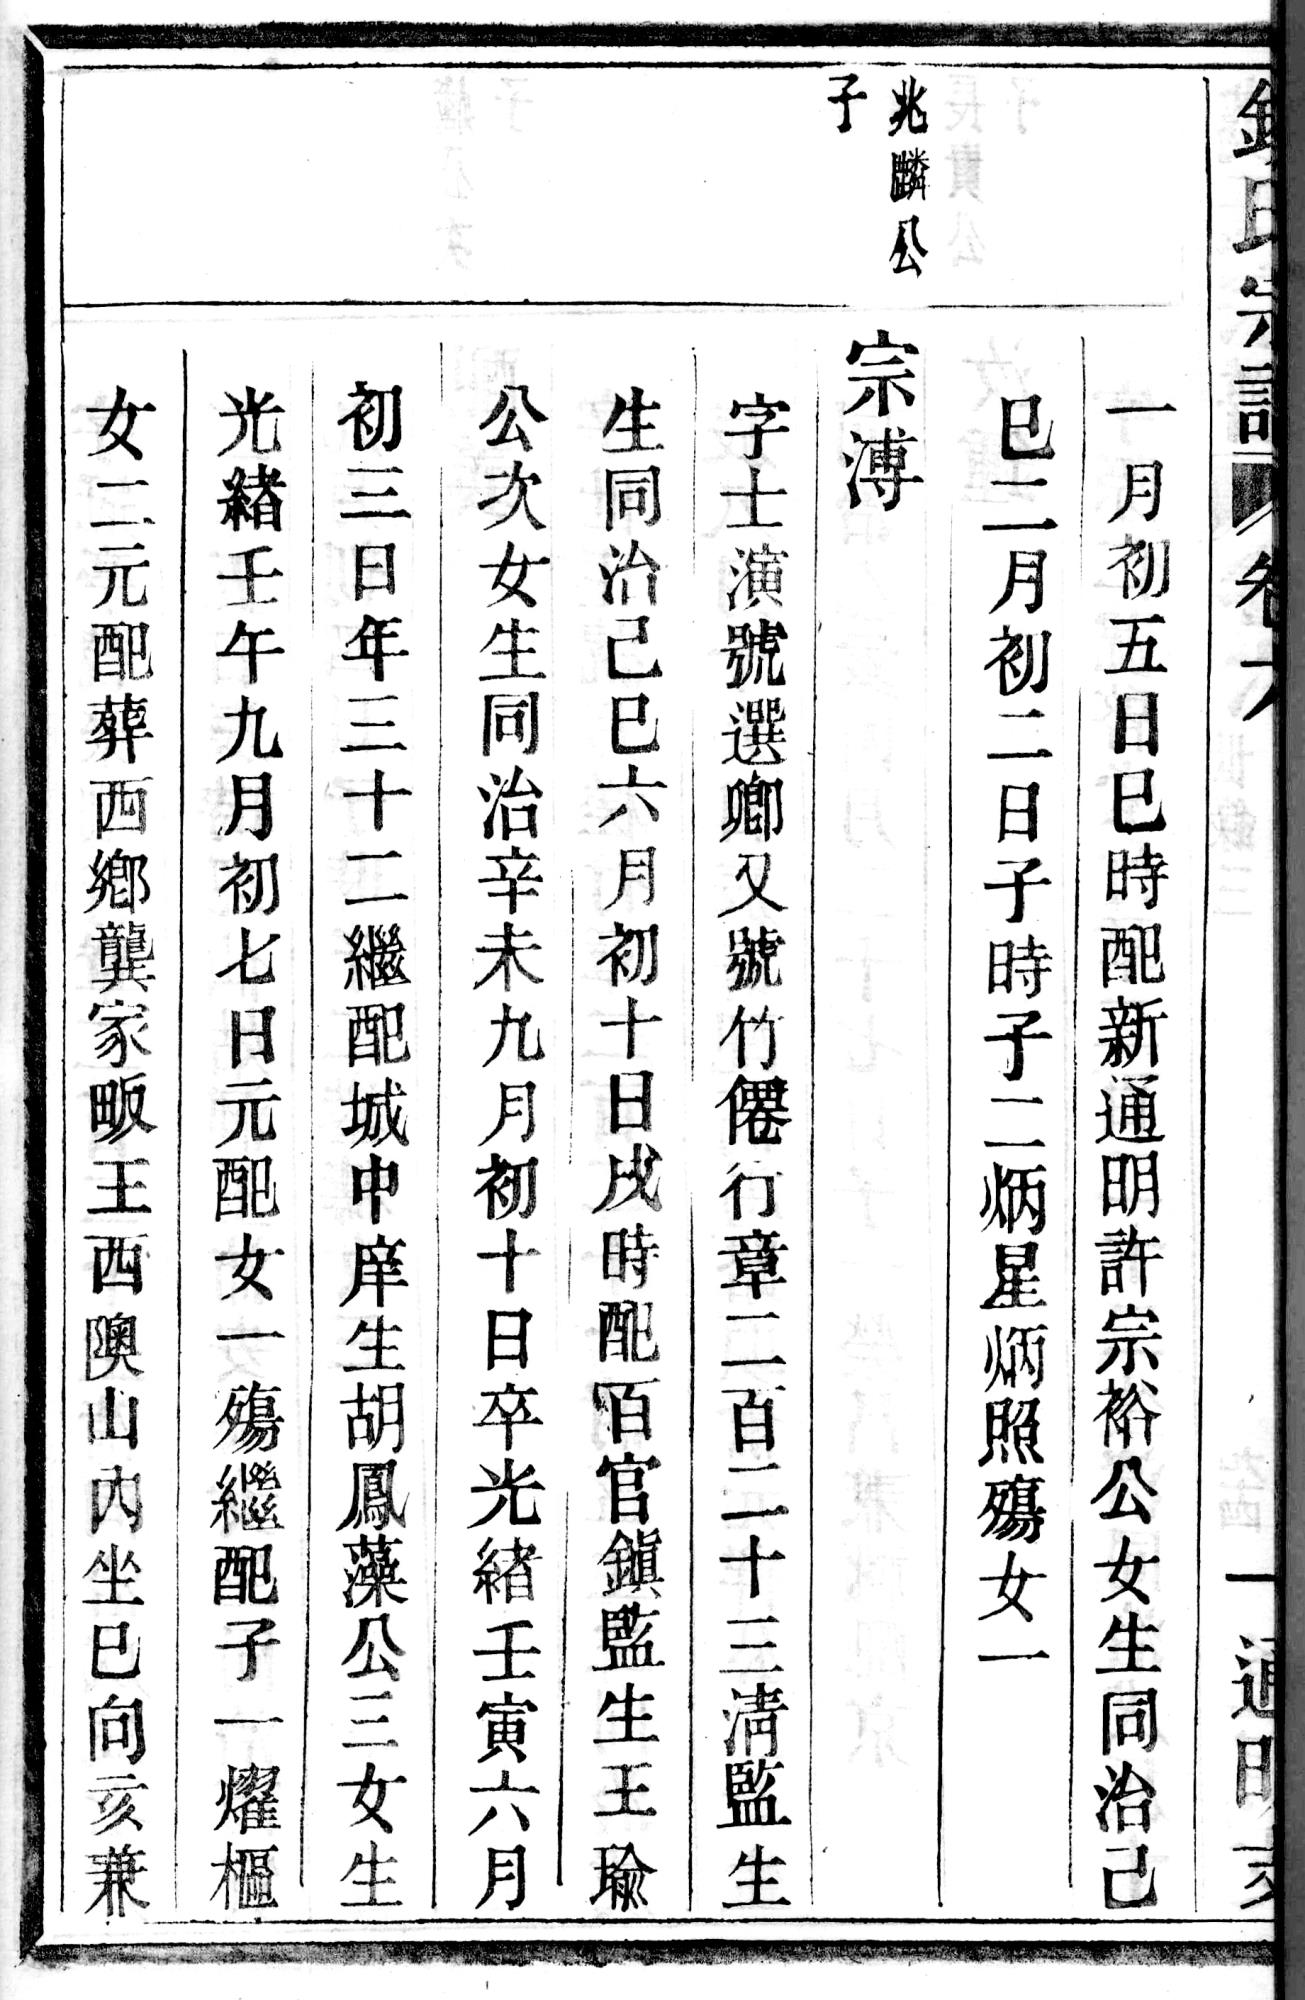 氏宗譜 卷六 一 通明支
一月初五日巳時配新通明許宗裕公女生同治己
巳二月初二日子時子二炳星炳照殤女一
兆麟公
子
宗溥
字士演號選卿又號竹僊行章二百二十三清監生
生同治己巳六月初十日戌時配百官鎭監生王瑜
公次女生同治辛未九月初十日卒光緒壬寅六月
初三日年三十二繼配城中庠生胡鳳藻公三女生
光緒壬午九月初七日元配女一殤繼配子一燿樞
女二元配葬西鄉龔家畈王西隩山內坐巳向亥兼